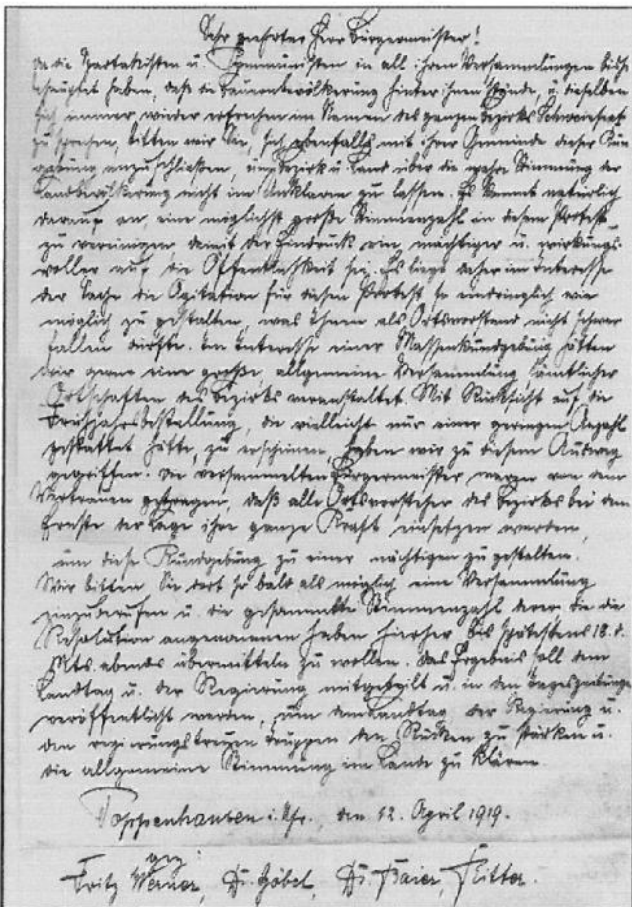 Sehr geehrter Herr Bürgermeister!
Da die Spartakisten u. Kommunisten in all ihren Versammlungen bisher
behauptet haben, daß die Bauernbevölkerung hinter ihnen stünde, u. dieselben
sich immer wieder erfrechen im Namen des ganzen Bezirks Schweinfurt
zu sprechen, bitten wir Sie, sich ebenfalls mit ihrer Gemeinde dieser Kund
gebung anzuschließen, um Bezirk u. Land über die wahre Stimmung der
Landbevölkerung nicht im Unklaren zu lassen. Es kommt natürlich
darauf an, eine möglichst große Stimmenzahl in diesem Protest
zu vereinigen damit der Eindruck ein mächtiger u. wirkungs-
voller auf die Öffentlichkeit sei. Es liegt daher im Interesse
der Sache die Agitation für diesen Protest so eindringlich wie
möglich zu gestalten, was Ihnen als Ortsvorstand nicht schwer
fallen dürfte. Im Interesse einer Massenkundgebung hätten
wir gerne eine große, allgemeine Versammlung sämtlicher
Ortschaften des Bezirks veranstaltet. Mit Rücksicht auf die
Frühjahrsbestellung, die vielleicht nur einer geringen Anzahl
gestattet hätte, zu erscheinen, haben wir zu diesem Ausweg
gegriffen. Die versammelten Bürgermeister waren von dem
Vertrauen getragen, daß alle Ortsvorsteher des Bezirks bei dem
Ernste der Lage ihre ganze Kraft einsetzen werden,
um diese Kundgebung zu einer mächtigen zu gestalten.
Wir bitten Sie dort so bald als möglich eine Versammlung
einzuberufen u. die gesammelte Stimmenzahl derer die die
Resolution angenommen haben hierher bis spätestens 18. d.
Mts. abends übermitteln zu wollen. Das Ergebnis soll dem
Landtag u. der Regierung mitgeteilt u. in den Tageszeitungen
veröffentlicht werden, um dem Landtag der Regierung u.
den regierungstreuen Truppen den Rücken zu stärken u.
die allgemeine Stimmung im Lande zu klären.
Poppenhausen i. Ufr., den 12. April 1919.
gez.
Fritz Werner, Dr. Göbel, Dr. Baier, Ritter.